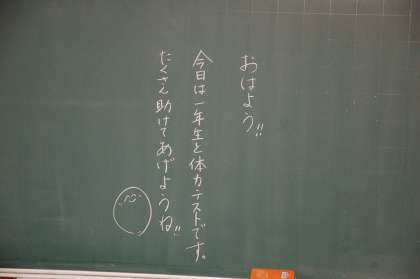 おはよう!!
今日は一年生と体力テストです。
たくさん助けてあげようね!!